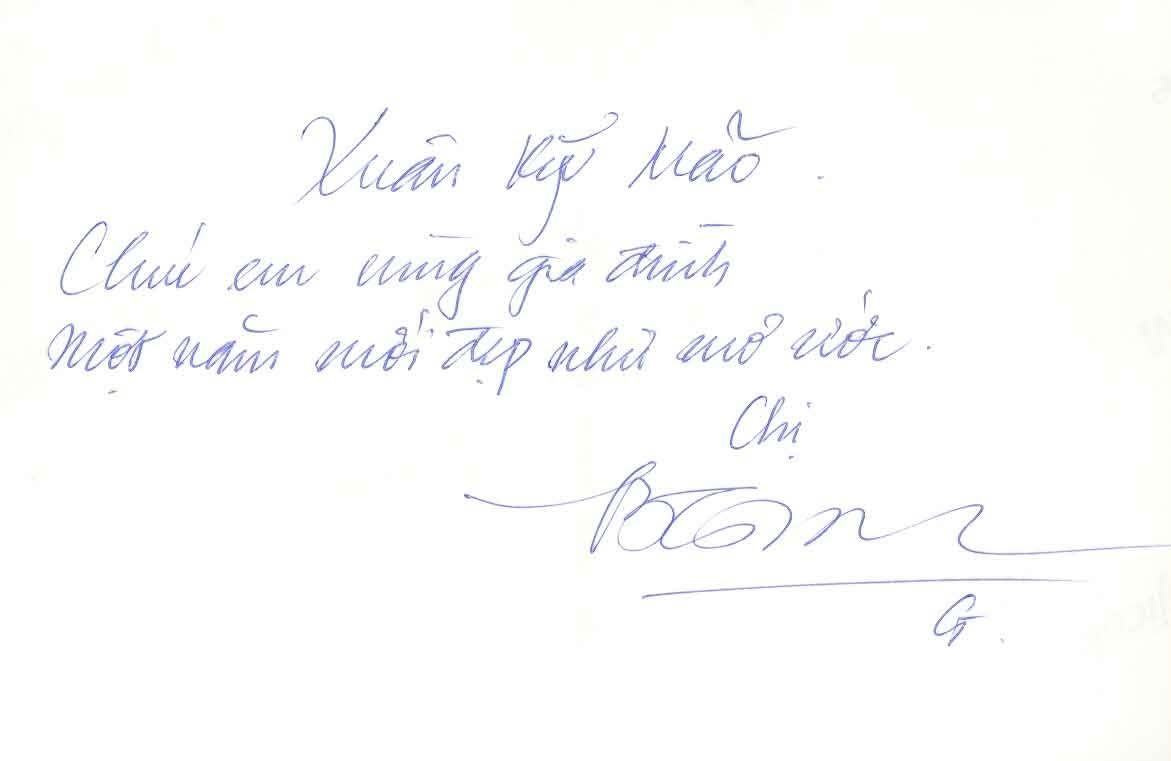 Xuân Kỷ Mão.
Chúc em cùng gia đình
một năm mới đẹp như mơ ước.
Chị
G.